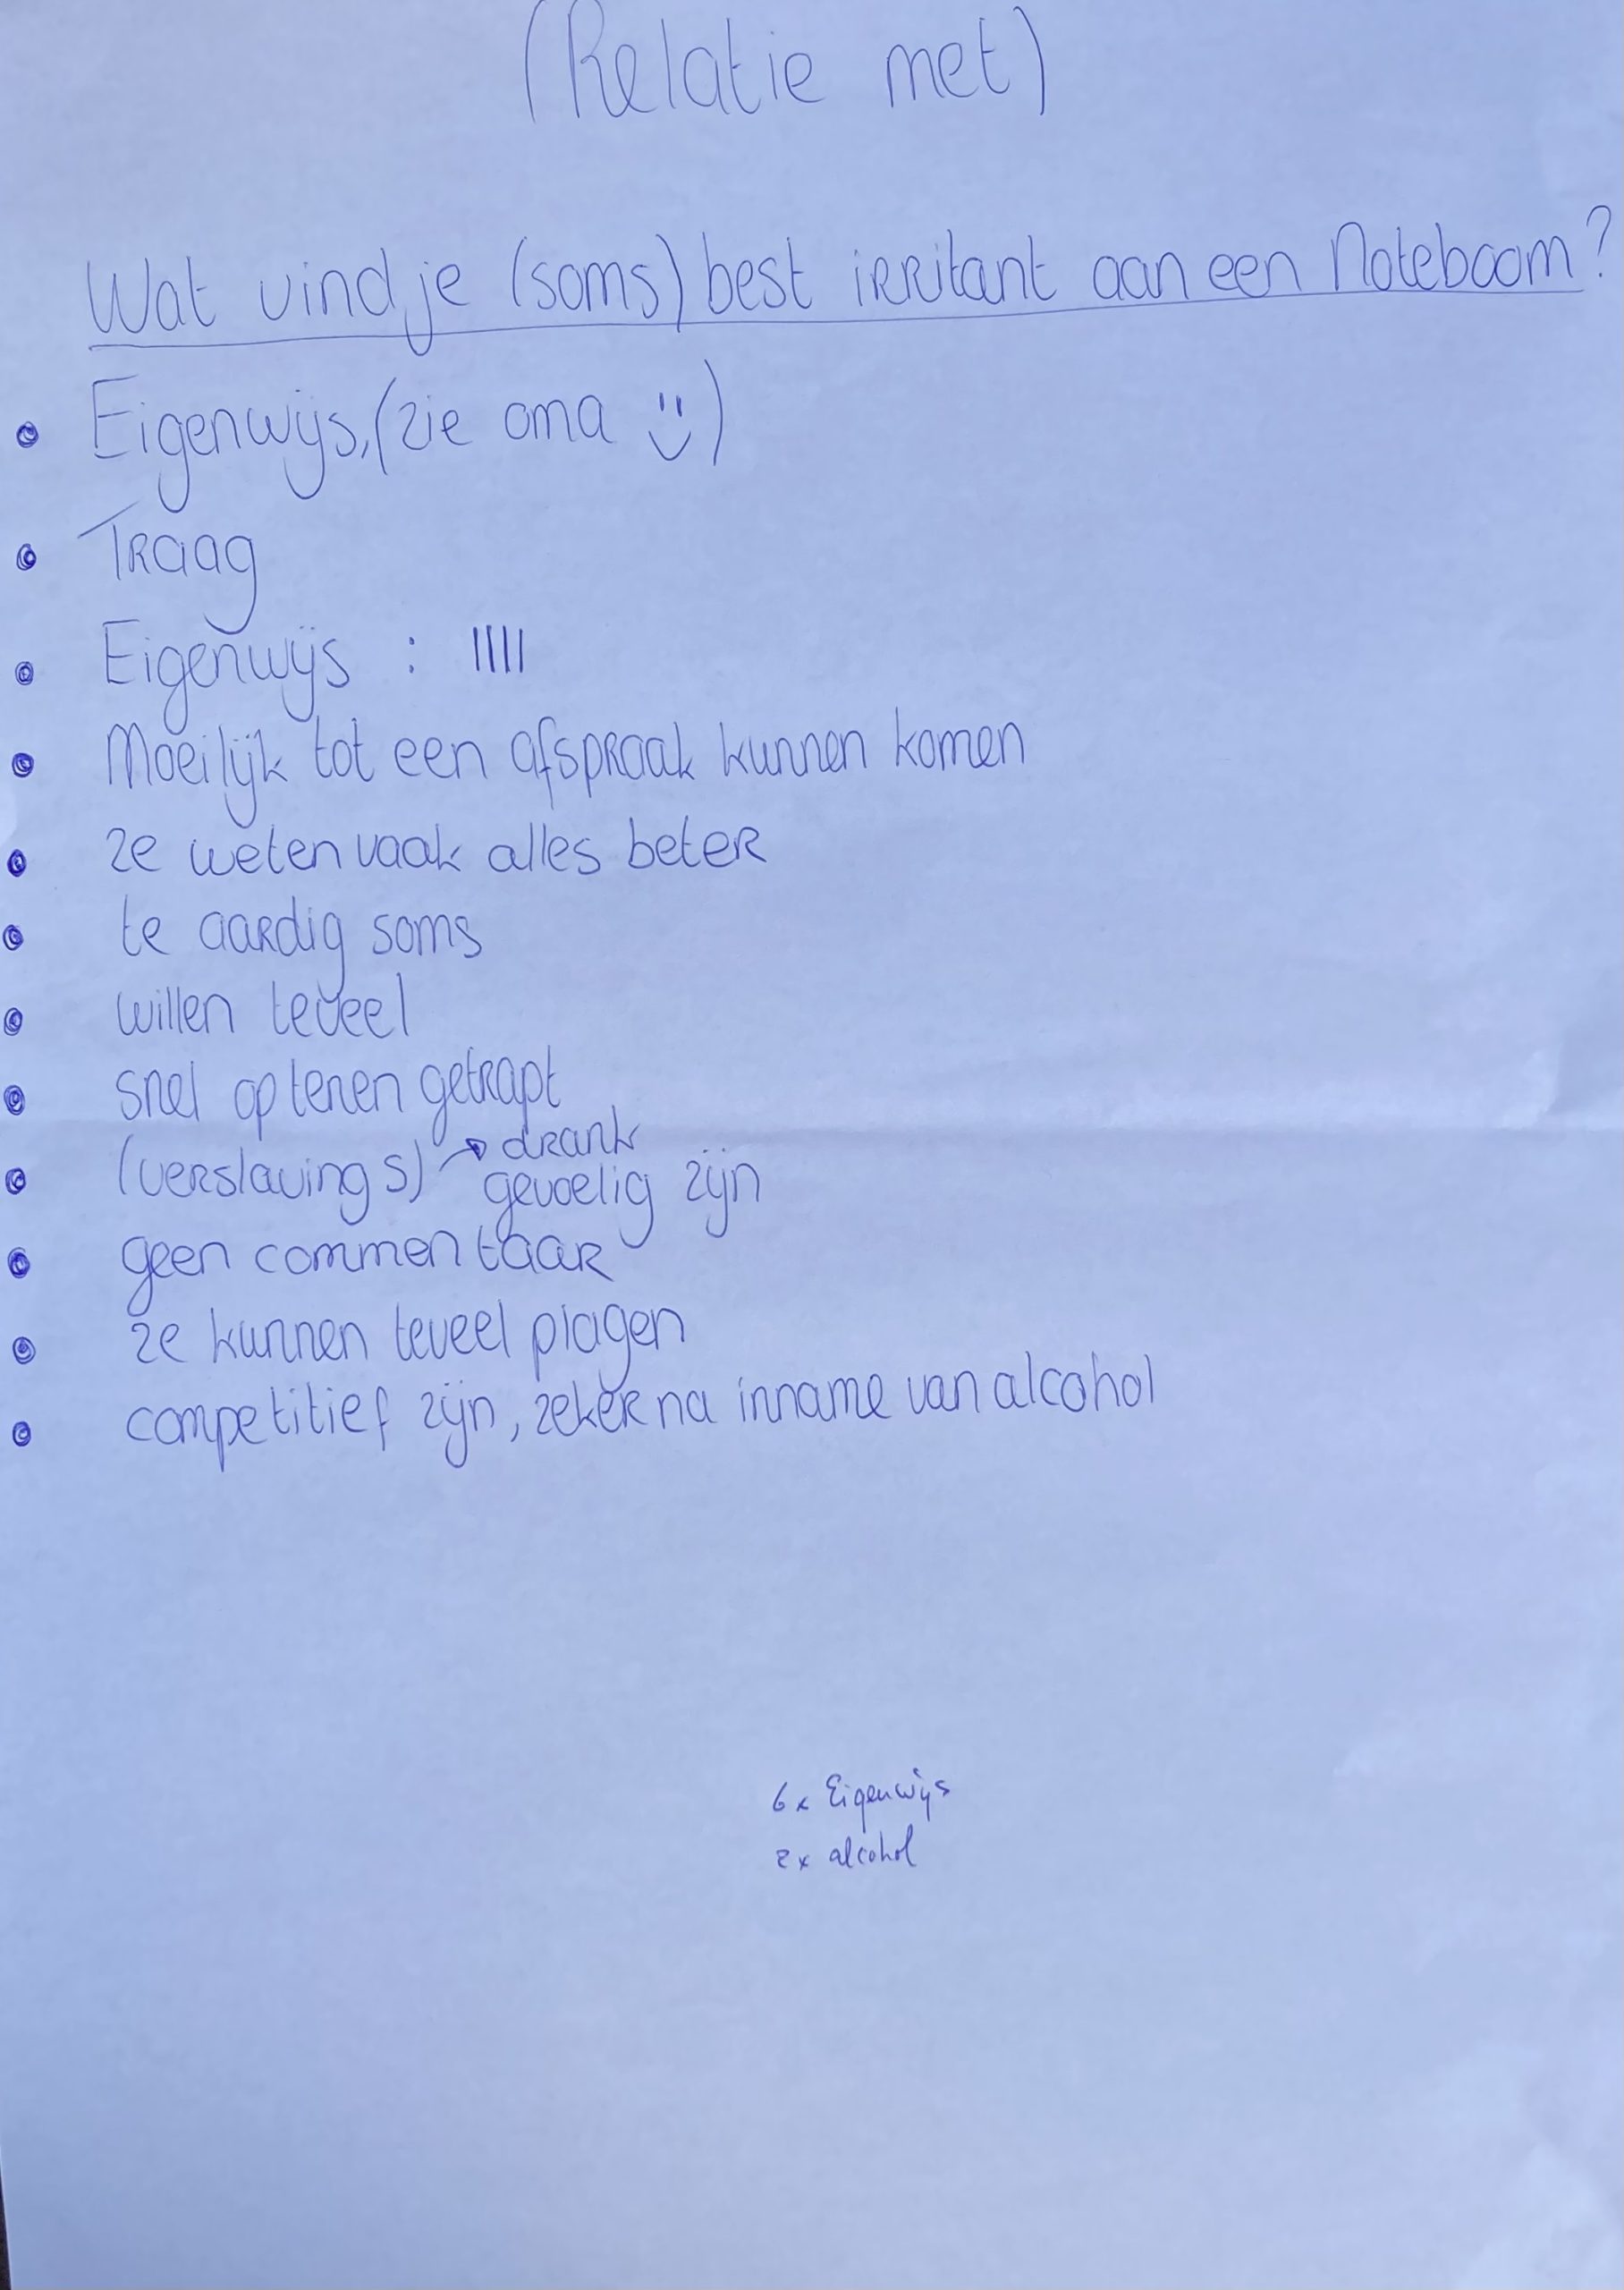 (Relatie met)
Wat vind je (soms) best irritant aan een Noteboom?
• Eigenwijs, (zie oma ü)
• Traag
• Eigenwijs : |||||
• Moeilijk tot een afspraak kunnen komen
• ze weten vaak alles beter
• te aardig soms
• willen teveel
• snel op tenen getrapt
drank
• (verslavings) gevoelig zijn
• geen commentaar
• ze kunnen teveel plagen
• competitief zijn, zeker na inname van alcohol
6x Eigenwijs
2x alcohol